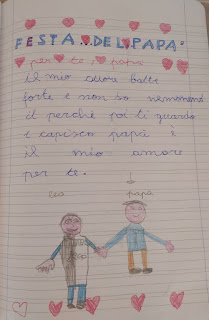 FESTA DEL PAPA'
per te, papà
il mio cuore batte
forte e non so nemmeno
il perchè poi ti guardo
e capisco papà è
il mio amore
per te.
papà